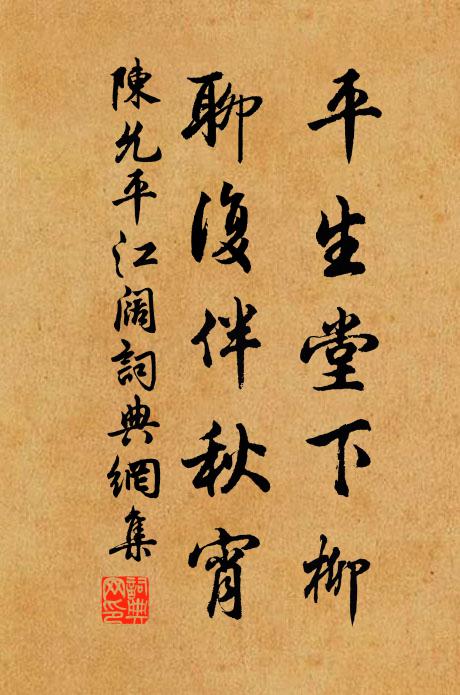 平生堂下柳
聊復伴秋宵
陳允平江闊詞典網集
詞典網印